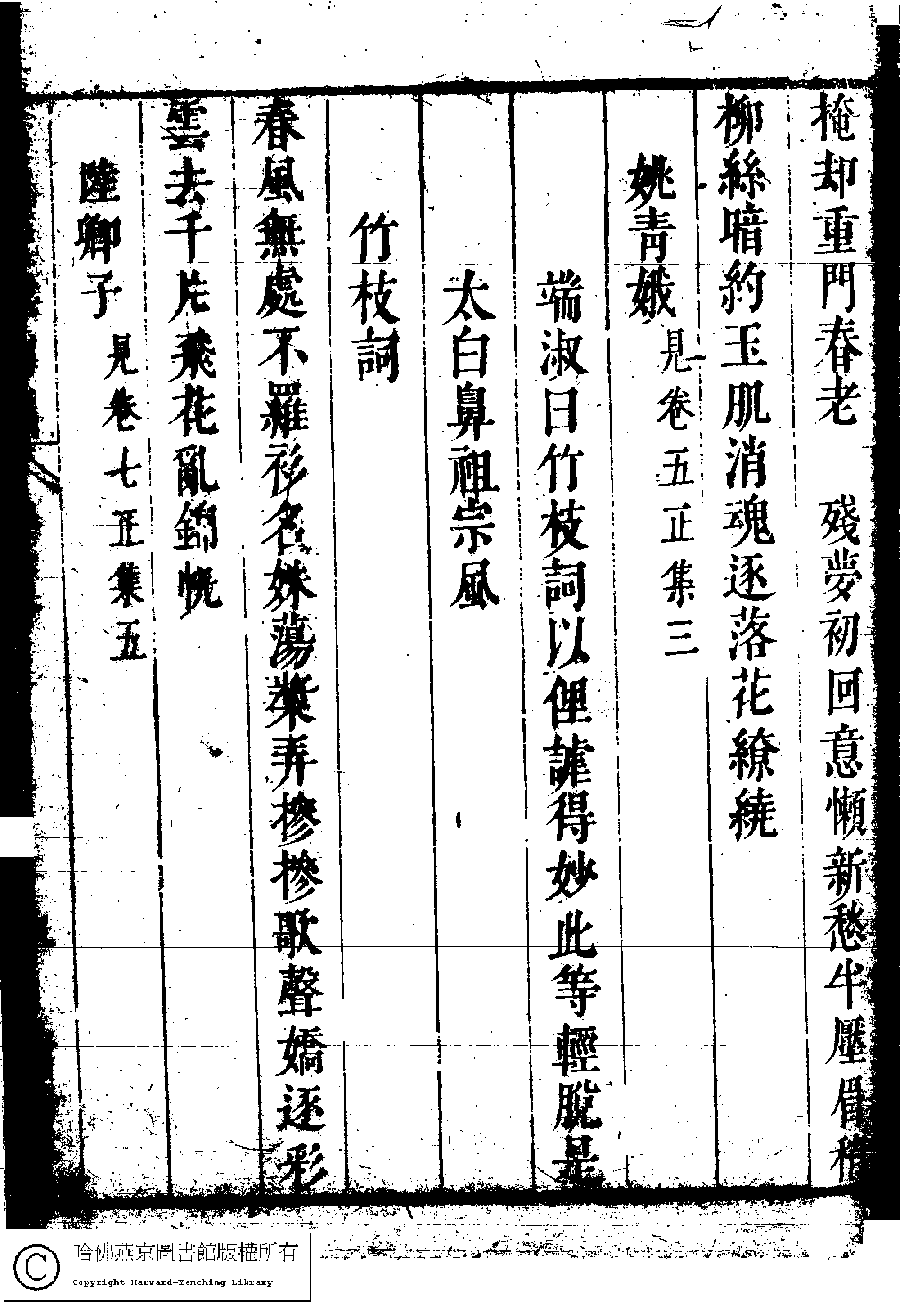 掩却重門春老　殘夢初回意懶新愁半壓眉梢
柳絲暗約玉肌消魂逐落花繚繞
姚青娥見卷五正集三
端淑曰竹枝詞以俚謔得妙此等輕脫是
太白鼻祖宗風
竹枝詞
春風無處不羅衫名姝蕩槳弄摻摻歌聲嬌逐彩
雲去千片飛花亂錦帆
陸卿子見卷七正集五
哈佛燕京圖書館版權所有
Copyright Harvard-Yenching Library